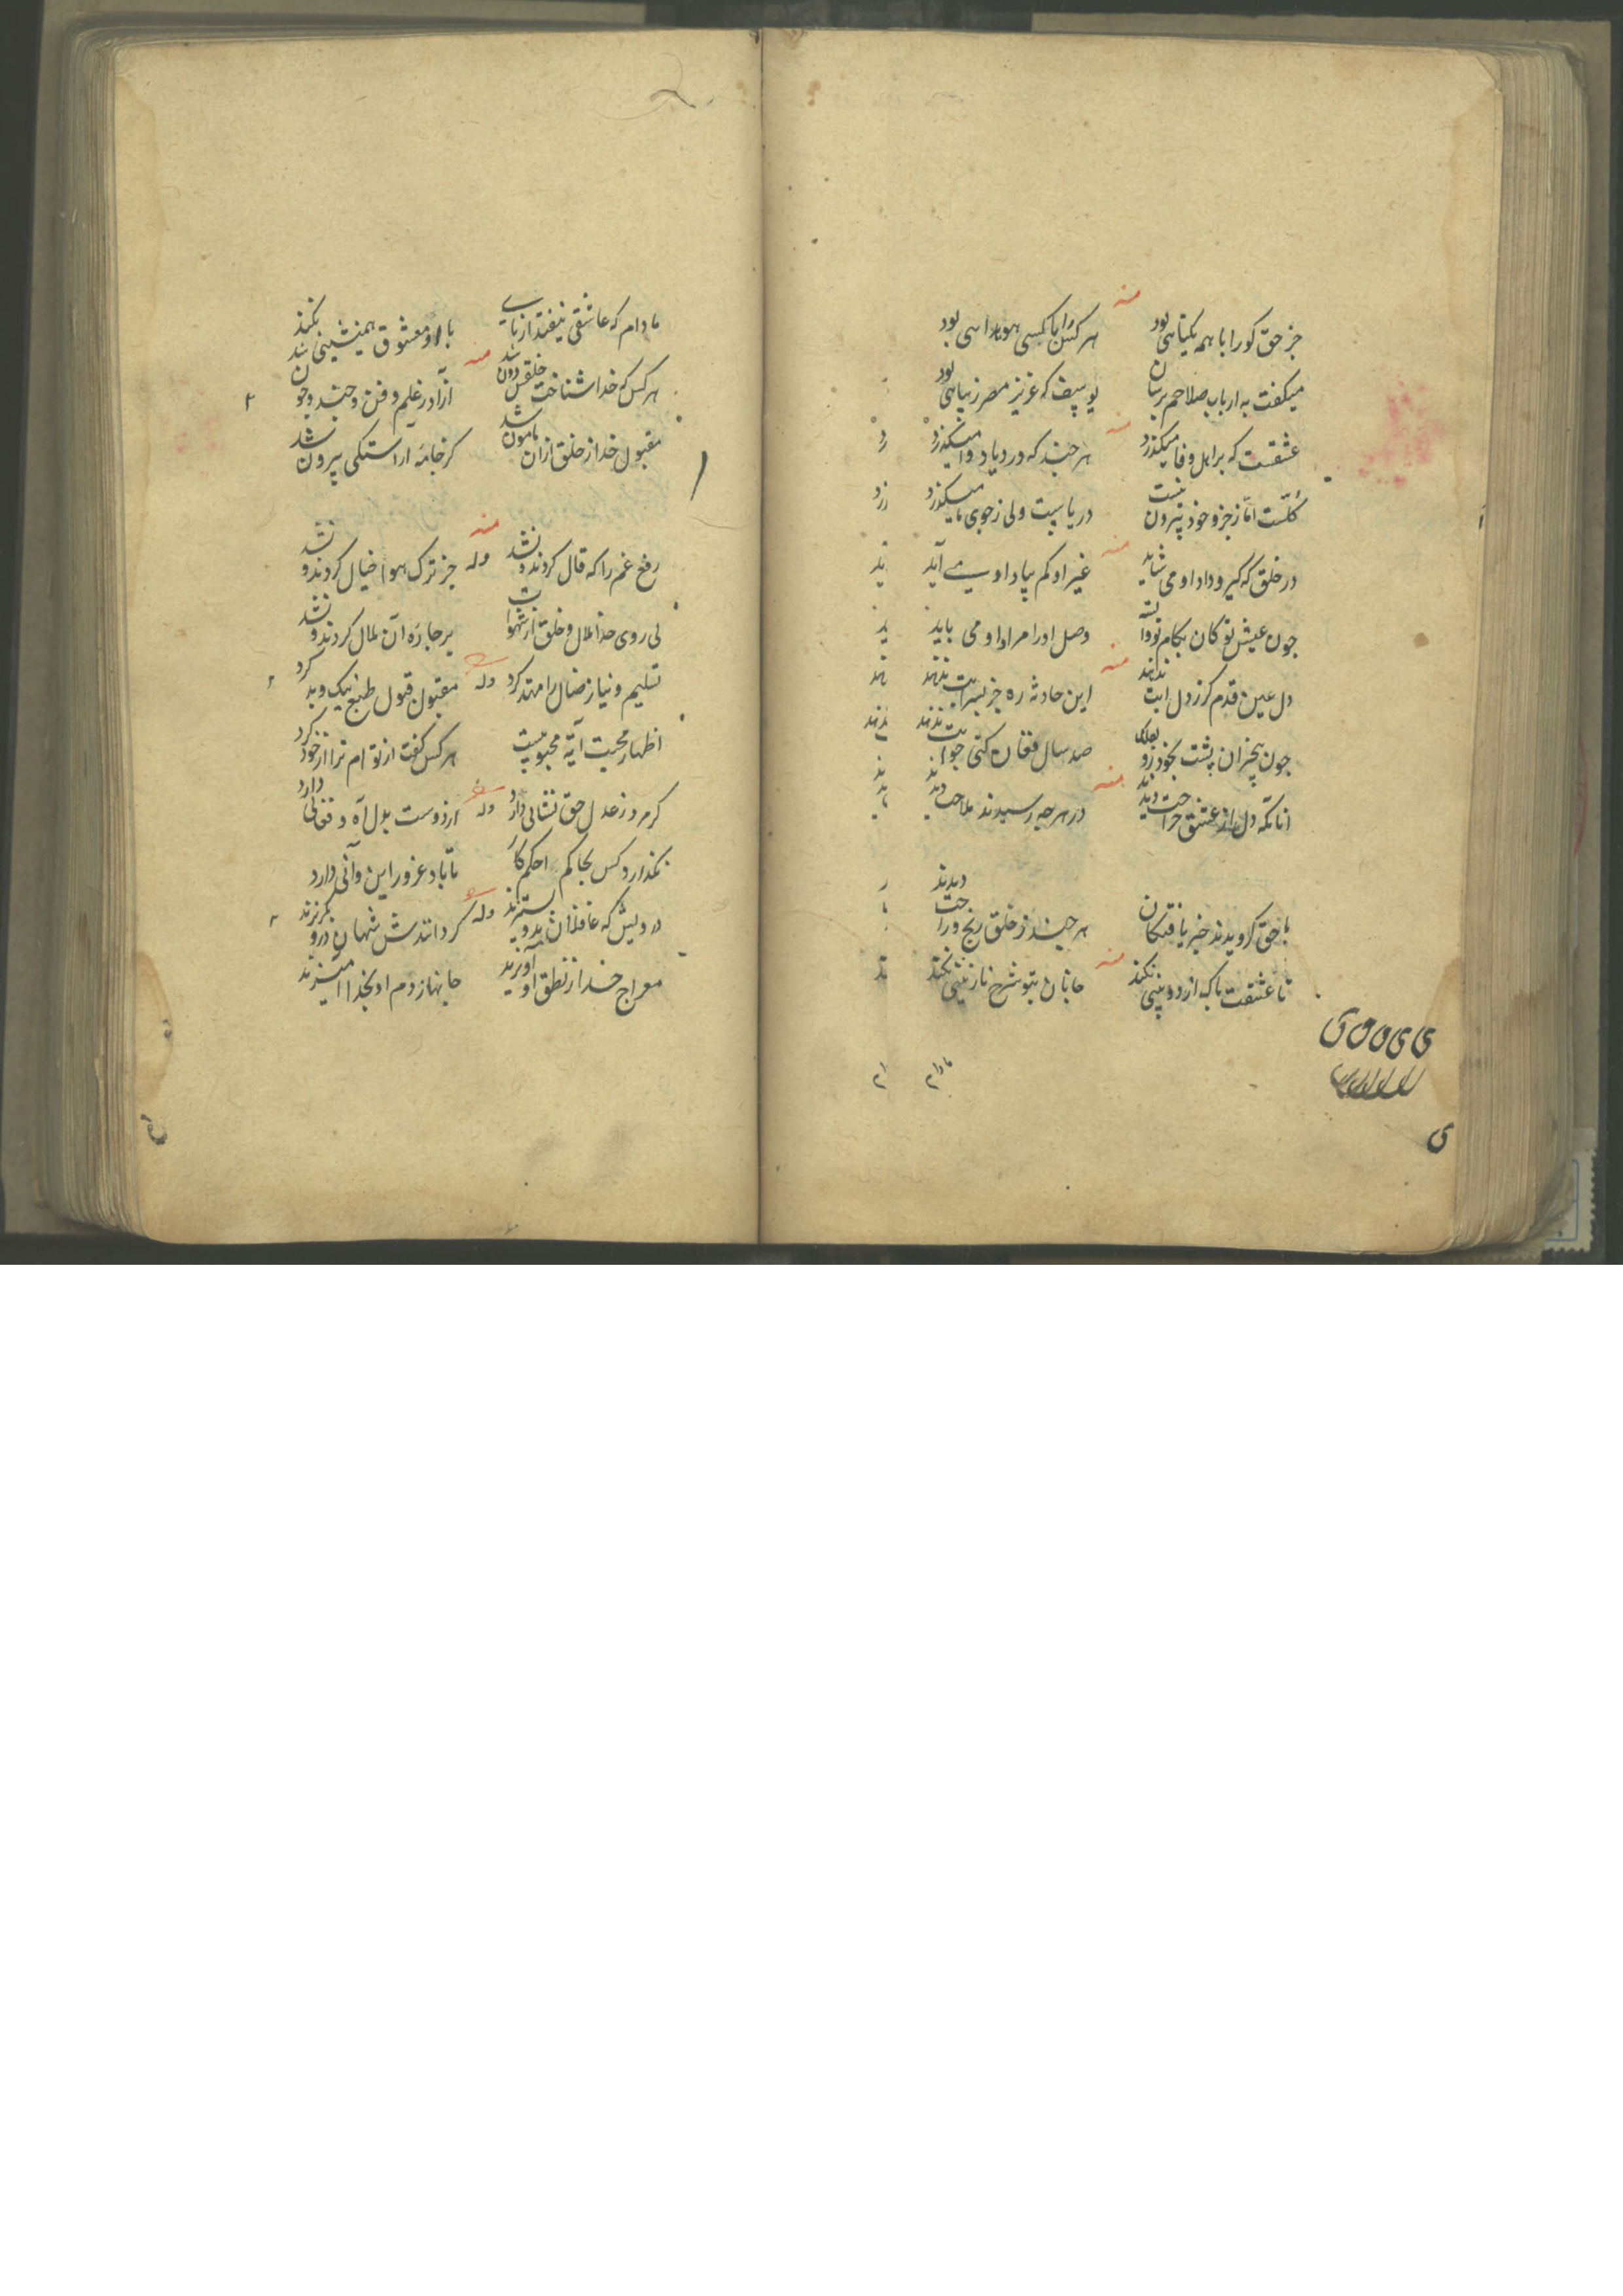 منه
جز حق کو را با همه یکتاهی بود
هر کس را با کسی هویداهی بود
میکفت به ارباب صلاحم برسان
یوسف که عزیز مصر زیباهی بود
منه
عشقست که بر اهل وفا میکذرد
هر چند که در دیار وا میکذرد
کلست اما ز جزو خود بیرون نیست
دریاست ولی ز جوی ما میکذرد
منه
در خلق که کیر و داد او می شاید
غیر او کم بیاد او می آید
چون عیش تو کان بکام تو وابسته
وصل او را مراد او می باید
منه
دل عین قدم کرز دل
این حادثه ره جز بسرابت ندهند
چون بیخبران پشت بخود رو
صد سال فغان کنی جوابت ندهند
منه
انانکه دل از عشق جراحت دیدند
در هر چه رسیدند ملاحت دیدند
با حق کرویدند خبر یافتکان
هر چند ز خلق رنج و راحت دیدند
منه
تا عشقت پاک از دوبینی نکند
جانان بتو شرح نازنینی نکند
مادام
مادام که عاشقی نیفتد از پای
با او معشوق همنشینی نکند
منه
هر کس که خدا شناخت خلقش دون شد
ازاد ز علم و فن و چند و چون شد
مقبول خدا ز خلق ازان مامون شد
کز جامه اراستکی بیرون شد
منه
رفع غم را که قال کردند و نشد
وله جز ترک هوا خیال کردند و نشد
بی روی خدا ملال و خلق از شهوات
بر چاره آن ملال کردند و نشد
تسلیم و نیاز ضال را مهتد کرد
وله مقبول قبول طبع نیک و بد کرد
اظهار محبت آیه محبوبیست
هر کس کفت از تو ام ترا از خود کرد
کر مرد ز عدل حق نشانی دارد
وله از دوست بدل آه و فغانی دارد
نکذارد کس بجا کم احکم کار
تا باد غرور این و آنی دارد
درویش که غافلان بدو بستیزند
وله کر دانندش شهان ازو نکریزند
معراج خدا ز نطق او آویزند
جانها ز دم او بخدا امیزند